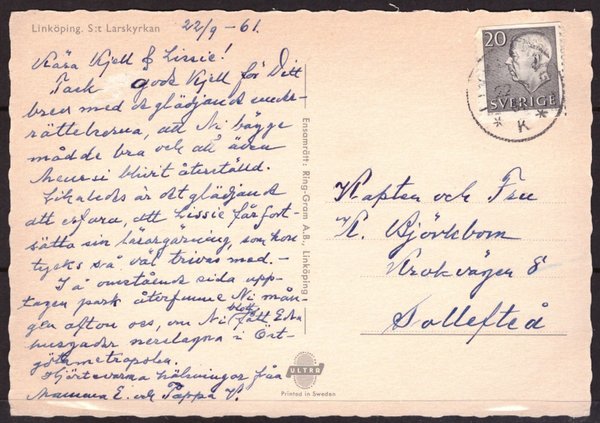 Linköping. S:t Larskyrkan
22/9 - 61.
Kära Kjell & Lissie!
Tack gode Kjell för Ditt
brev med de glädjande under-
rättelserna, att Ni bägge
mådde bra och att även
blivit återställd.
Likaledes är det glädjande
att erfara, att Lissie får fort-
sätta sin lärargärning, som hon
tycks så väl trivas med. -
I å omstående sida upp-
tagen park återfunne Ni mån-
gen afton oss, om Ni blott fått Edra
husgader nerslagna i Öst-
götametropolen.
Hjärtevarma hälsningar från
Mamma E. och Pappa V.
Ensamrätt: Ring-Gram A.B., Linköping
ULTRA
Printed in Sweden
20
SVERIGE
22
* K *
Kapten och Fru
K. Björkbom
Krokvägen 8
Sollefteå